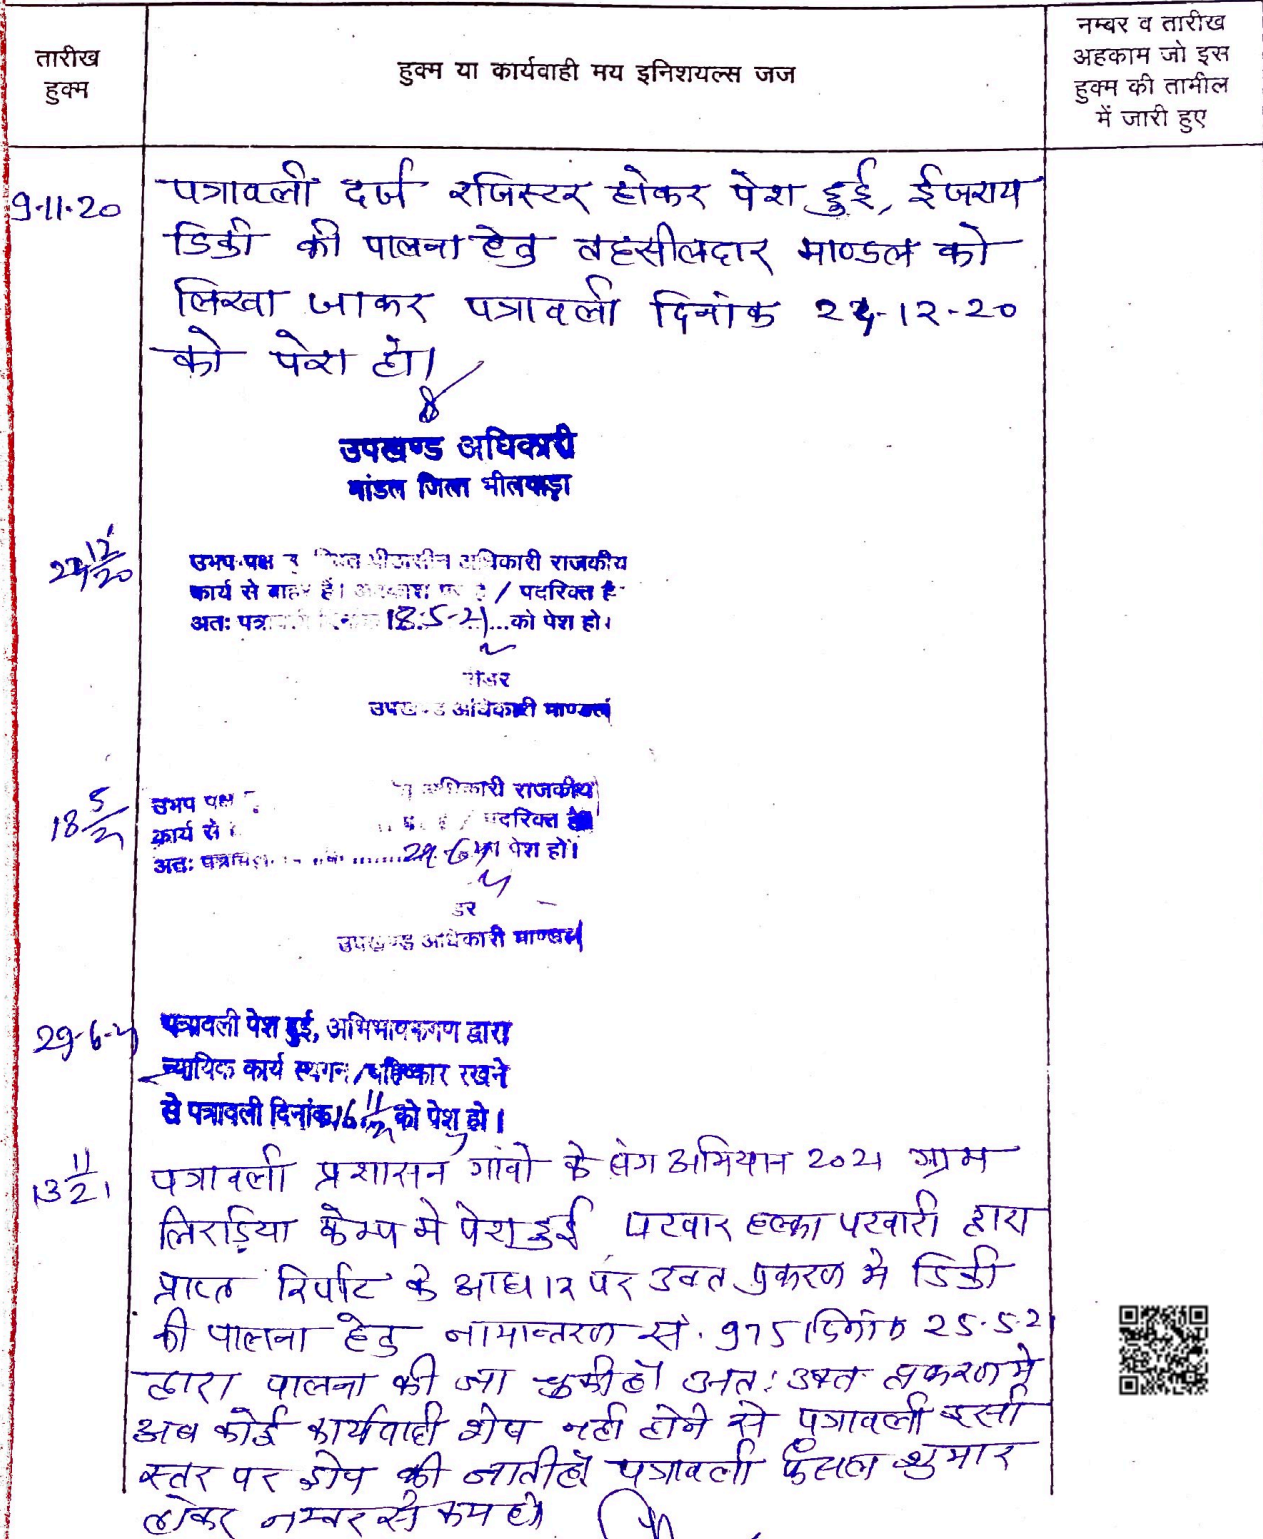 तारीख
हुक्म
हुक्म या कार्यवाही मय इनिशयल्स जज
नम्बर व तारीख
अहकाम जो इस
हुक्म की तामील
में जारी हुए
9-11-20
पत्रावली दर्ज रजिस्टर होकर पेश हुई, ईजराय
डिक्री की पालना हेतु तहसीलदार माण्डल को
लिखा जाकर पत्रावली दिनांक 24-12-20
को पेश हो।
उपखण्ड अधिकारी
मांडल जिला भीलवाड़ा
24/12/20
उभय पक्ष अधिकारी राजकीय
कार्य से बाहर है। अवकाश पर है / पदरिक्त है
अतः पत्रावली दिनांक 18-5-21 को पेश हो।
रीडर
उपखण्ड अधिकारी माण्डल
18/5/21
उभय पक्ष अधिकारी राजकीय
कार्य से / पदरिक्त है
अतः पत्रावली 29-6-21 पेश हो।
डर
उपखण्ड अधिकारी माण्डल
29-6-21
पत्रावली पेश हुई, अभिभाषकगण द्वारा
न्यायिक कार्य स्थगन/बहिष्कार रखने
से पत्रावली दिनांक 16/11/21 को पेश हो।
13/11/21
पत्रावली प्रशासन गांवो के संग अभियान 2021 ग्राम
लिरड़िया केम्प मे पेश हुई पटवार हल्का पटवारी द्वारा
प्राप्त रिर्पोट के आधार पर उक्त प्रकरण मे डिक्री
की पालना हेतु नामान्तरण सं. 975 दिनांक 25-5-21
द्वारा पालना की जा चुकी है। अतः उक्त प्रकरण मे
अब कोई कार्यवाही शेष नही होने से पत्रावली इसी
स्तर पर ड्रोप की जाती है। पत्रावली फैसल शुमार
होकर नम्बर से कम हो।